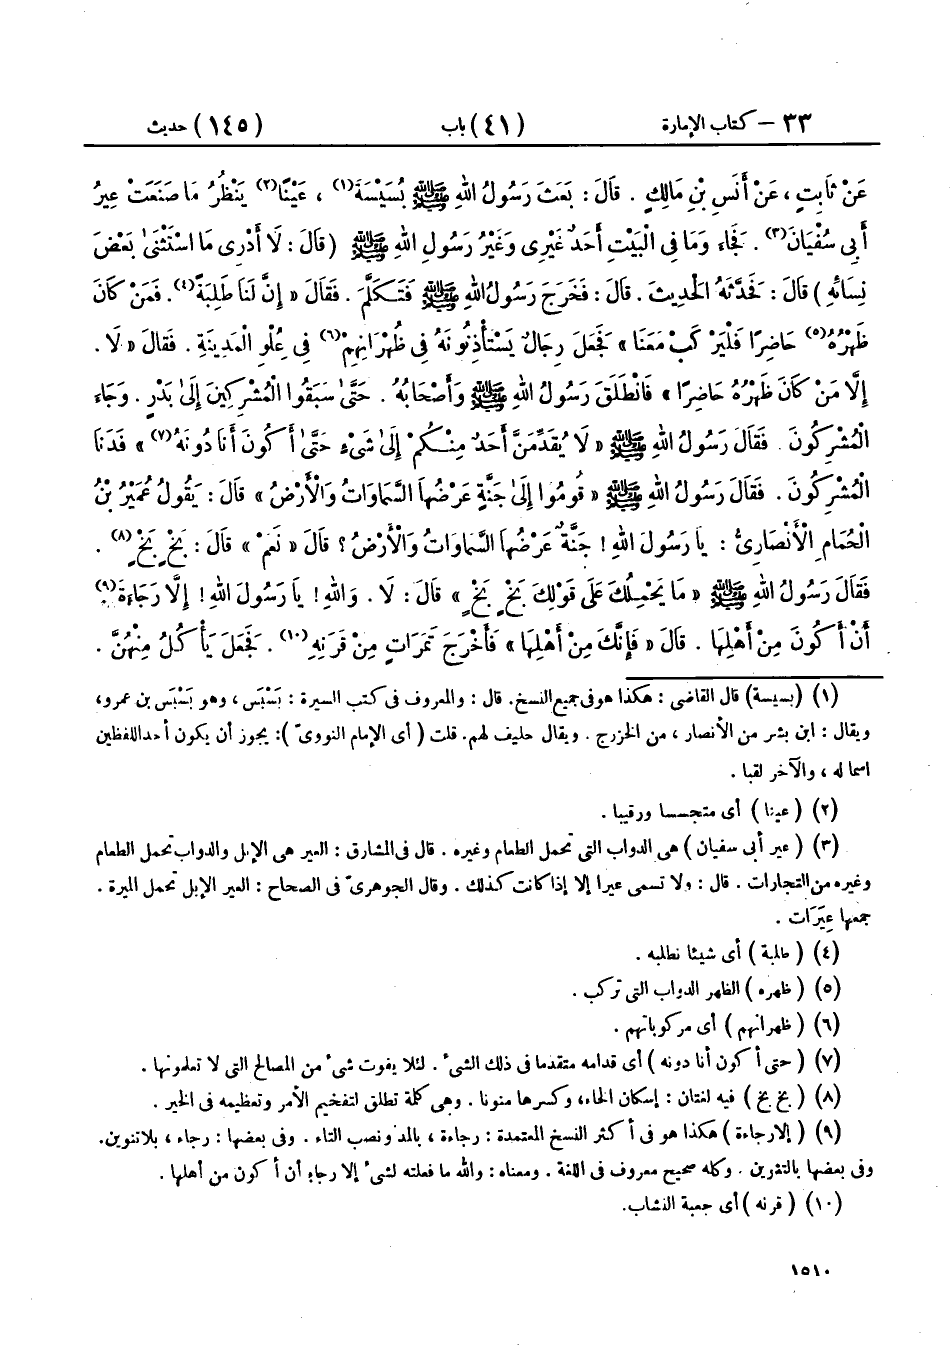 ٣٣ – كتاب الإمارة (٤١) باب (١٤٥) حديث
عَنْ ثَابِتٍ، عَنْ أَنَسِ بْنِ مَالِكٍ. قَالَ: بَعَثَ رَسُولُ اللهِ ﷺ بُسَيْسَةَ(١)، عَيْنًا(٢) يَنْظُرُ مَا صَنَعَتْ عِيرُ
أَبِي سُفْيَانَ(٣). فَجَاءَ وَمَا فِي الْبَيْتِ أَحَدٌ غَيْرِى وَغَيْرُ رَسُولِ اللهِ ﷺ (قَالَ: لَا أَدْرِى مَا اسْتَثْنَىٰ بَعْضَ
نِسَائِهِ) قَالَ: فَحَدَّثَهُ الْحَدِيثَ. قَالَ: فَخَرَجَ رَسُولُ اللهِ ﷺ فَتَكَلَّمَ. فَقَالَ « إِنَّ لَنَا طَلِبَةً(٤). فَمَنْ كَانَ
ظَهْرُهُ(٥) حَاضِرًا فَلْيَرْكَبْ مَعَنَا » فَجَعَلَ رِجَالٌ يَسْتَأْذِنُونَهُ فِي ظُهْرَانِهِمْ(٦) فِي عُلْوِ الْمَدِينَةِ. فَقَالَ « لَا.
إِلَّا مَنْ كَانَ ظَهْرُهُ حَاضِرًا » فَانْطَلَقَ رَسُولُ اللهِ ﷺ وَأَصْحَابُهُ. حَتَّىٰ سَبَقُوا الْمُشْرِكِينَ إِلَىٰ بَدْرٍ. وَجَاءَ
الْمُشْرِكُونَ. فَقَالَ رَسُولُ اللهِ ﷺ « لَا يُقَدِّمَنَّ أَحَدٌ مِنْكُمْ إِلَىٰ شَىْءٍ حَتَّىٰ أَكُونَ أَنَا دُونَهُ(٧) » فَدَنَا
الْمُشْرِكُونَ. فَقَالَ رَسُولُ اللهِ ﷺ « قُومُوا إِلَىٰ جَنَّةٍ عَرْضُهَا السَّمَاوَاتُ وَالْأَرْضُ » قَالَ: يَقُولُ عُمَيْرُ بْنُ
الْحُمَامِ الْأَنْصَارِىُّ: يَا رَسُولَ اللهِ! جَنَّةٌ عَرْضُهَا السَّمَاوَاتُ وَالْأَرْضُ؟ قَالَ « نَعَمْ » قَالَ: بَخْ بَخْ(٨).
فَقَالَ رَسُولُ اللهِ ﷺ « مَا يَحْمِلُكَ عَلَى قَوْلِكَ بَخْ بَخْ » قَالَ: لَا. وَاللهِ! يَا رَسُولَ اللهِ! إِلَّا رَجَاءَةَ(٩)
أَنْ أَكُونَ مِنْ أَهْلِهَا. قَالَ « فَإِنَّكَ مِنْ أَهْلِهَا » فَأَخْرَجَ تَمَرَاتٍ مِنْ قَرَنِهِ(١٠). فَجَعَلَ يَأْكُلُ مِنْهُنَّ.
(١) (بسيسة) قال القاضي: هكذا هو فى جميع النسخ. قال: والمعروف فى كتب السيرة: بَسْبَس، وهو بَسْبَس بن عمرو،
ويقال: ابن بشر من الأنصار، من الخزرج. ويقال حليف لهم. قلت (أى الإمام النووىّ): يجوز أن يكون أحد اللفظين
اسما له، والآخر لقبا.
(٢) (عينا) أى متجسسا ورقيبا.
(٣) (عير أبى سفيان) هى الدواب التى تحمل الطعام وغيره. قال فى المشارق: العير هى الإبل والدواب تحمل الطعام
وغيره من التجارات. قال: ولا تسمى عيرا إلا إذا كانت كذلك. وقال الجوهرىّ فى الصحاح: العير الإبل تحمل الميرة.
جمعها عِيَرَات.
(٤) (طلبة) أى شيئا نطلبه.
(٥) (ظهره) الظهر الدواب التى تركب.
(٦) (ظهرانهم) أى مركوباتهم.
(٧) (حتى أكون أنا دونه) أى قدامه متقدما فى ذلك الشىء. لئلا يفوت شىء من المصالح التى لا تعلمونها.
(٨) (بخ بخ) فيه لغتان: إسكان الخاء، وكسرها منونا. وهى كلمة تطلق لتفخيم الأمر وتعظيمه فى الخير.
(٩) (إلا رجاءة) هكذا هو فى أكثر النسخ المعتمدة: رجاءة، بالمد ونصب التاء. وفى بعضها: رجاء، بلا تنوين.
وفى بعضها بالتنوين. وكله صحيح معروف فى اللغة. ومعناه: والله ما فعلته لشىء إلا رجاء أن أكون من أهلها.
(١٠) (قرنه) أى جعبة النشاب.
١٥١٠